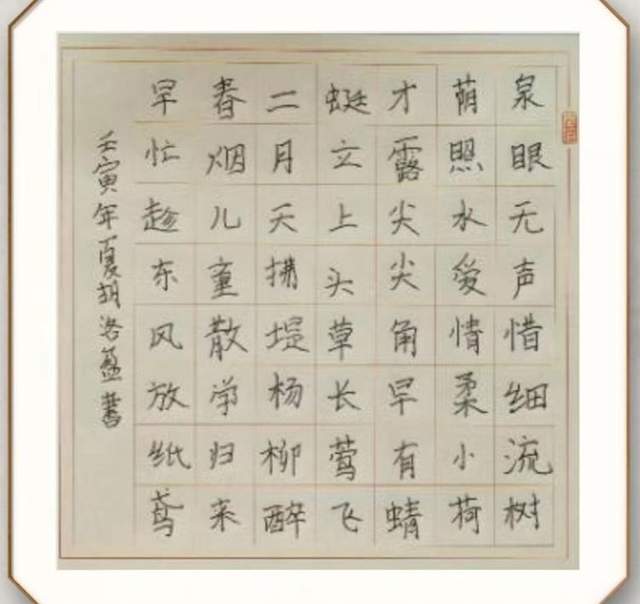 泉眼无声惜细流树
荫照水爱情柔小荷
才露尖尖角早有蜻
蜓立上头草长莺飞
二月天拂堤杨柳醉
春烟儿童散学归来
早忙趁东风放纸鸢
壬寅年夏胡洛書